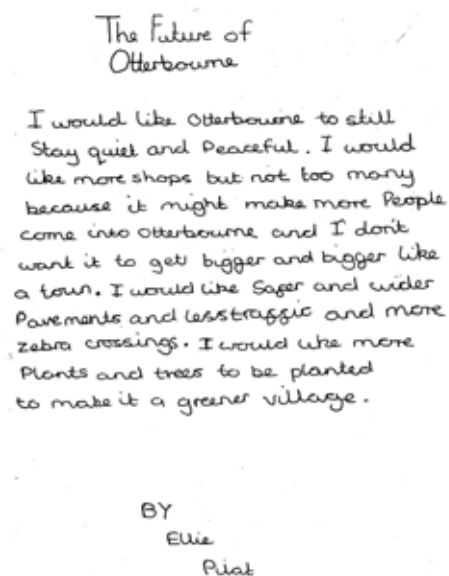 The Future of
Otterbourne
I would like Otterbourne to still
Stay quiet and Peaceful. I would
like more shops but not too many
because it might make more People
come into Otterbourne and I don't
want it to get bigger and bigger like
a town. I would like Safer and wider
Pavements and less traffic and more
zebra crossings. I would like more
Plants and trees to be planted
to make it a greener village.
BY
Ellie